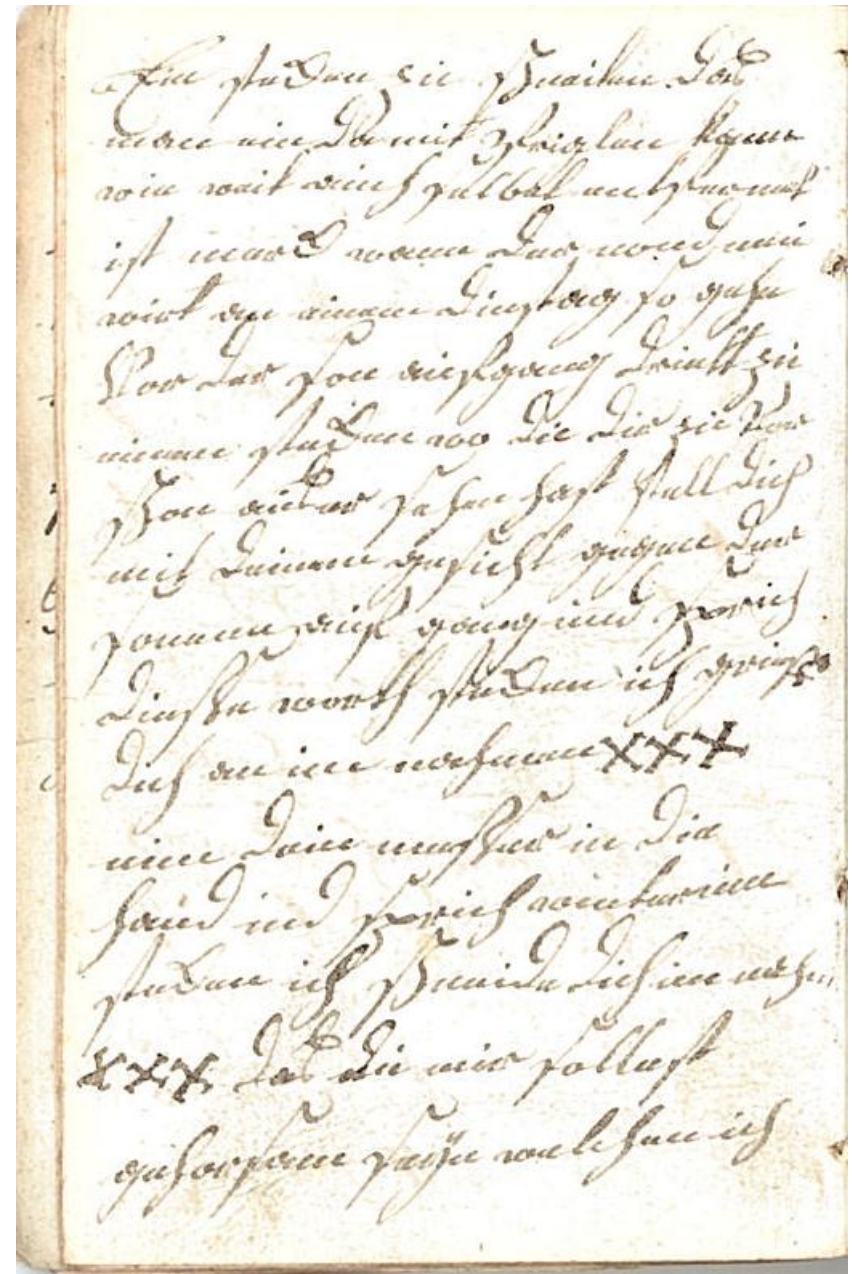 Ein stecken zu schneiten das
man ein da mit Prialen kann
wie weit einh selbst entfernet
ist merck wann der mond nei
wirt an einem dinstag so gehe
Vor der son aufgang drinks zu
einem stecken wo du dir zu vor
schon ausser sehen hast stell dich
mit deinem gesicht gegen der
sonnen auf gang und sprich
diesse worth stecken ich greiffe
dich an im nahmen xxx
nim dein messer in die
hand und sprich wieterum
stecken ich schneide dich im nahm
xxx das du mir sollest
gehorsam seÿn welchen ich